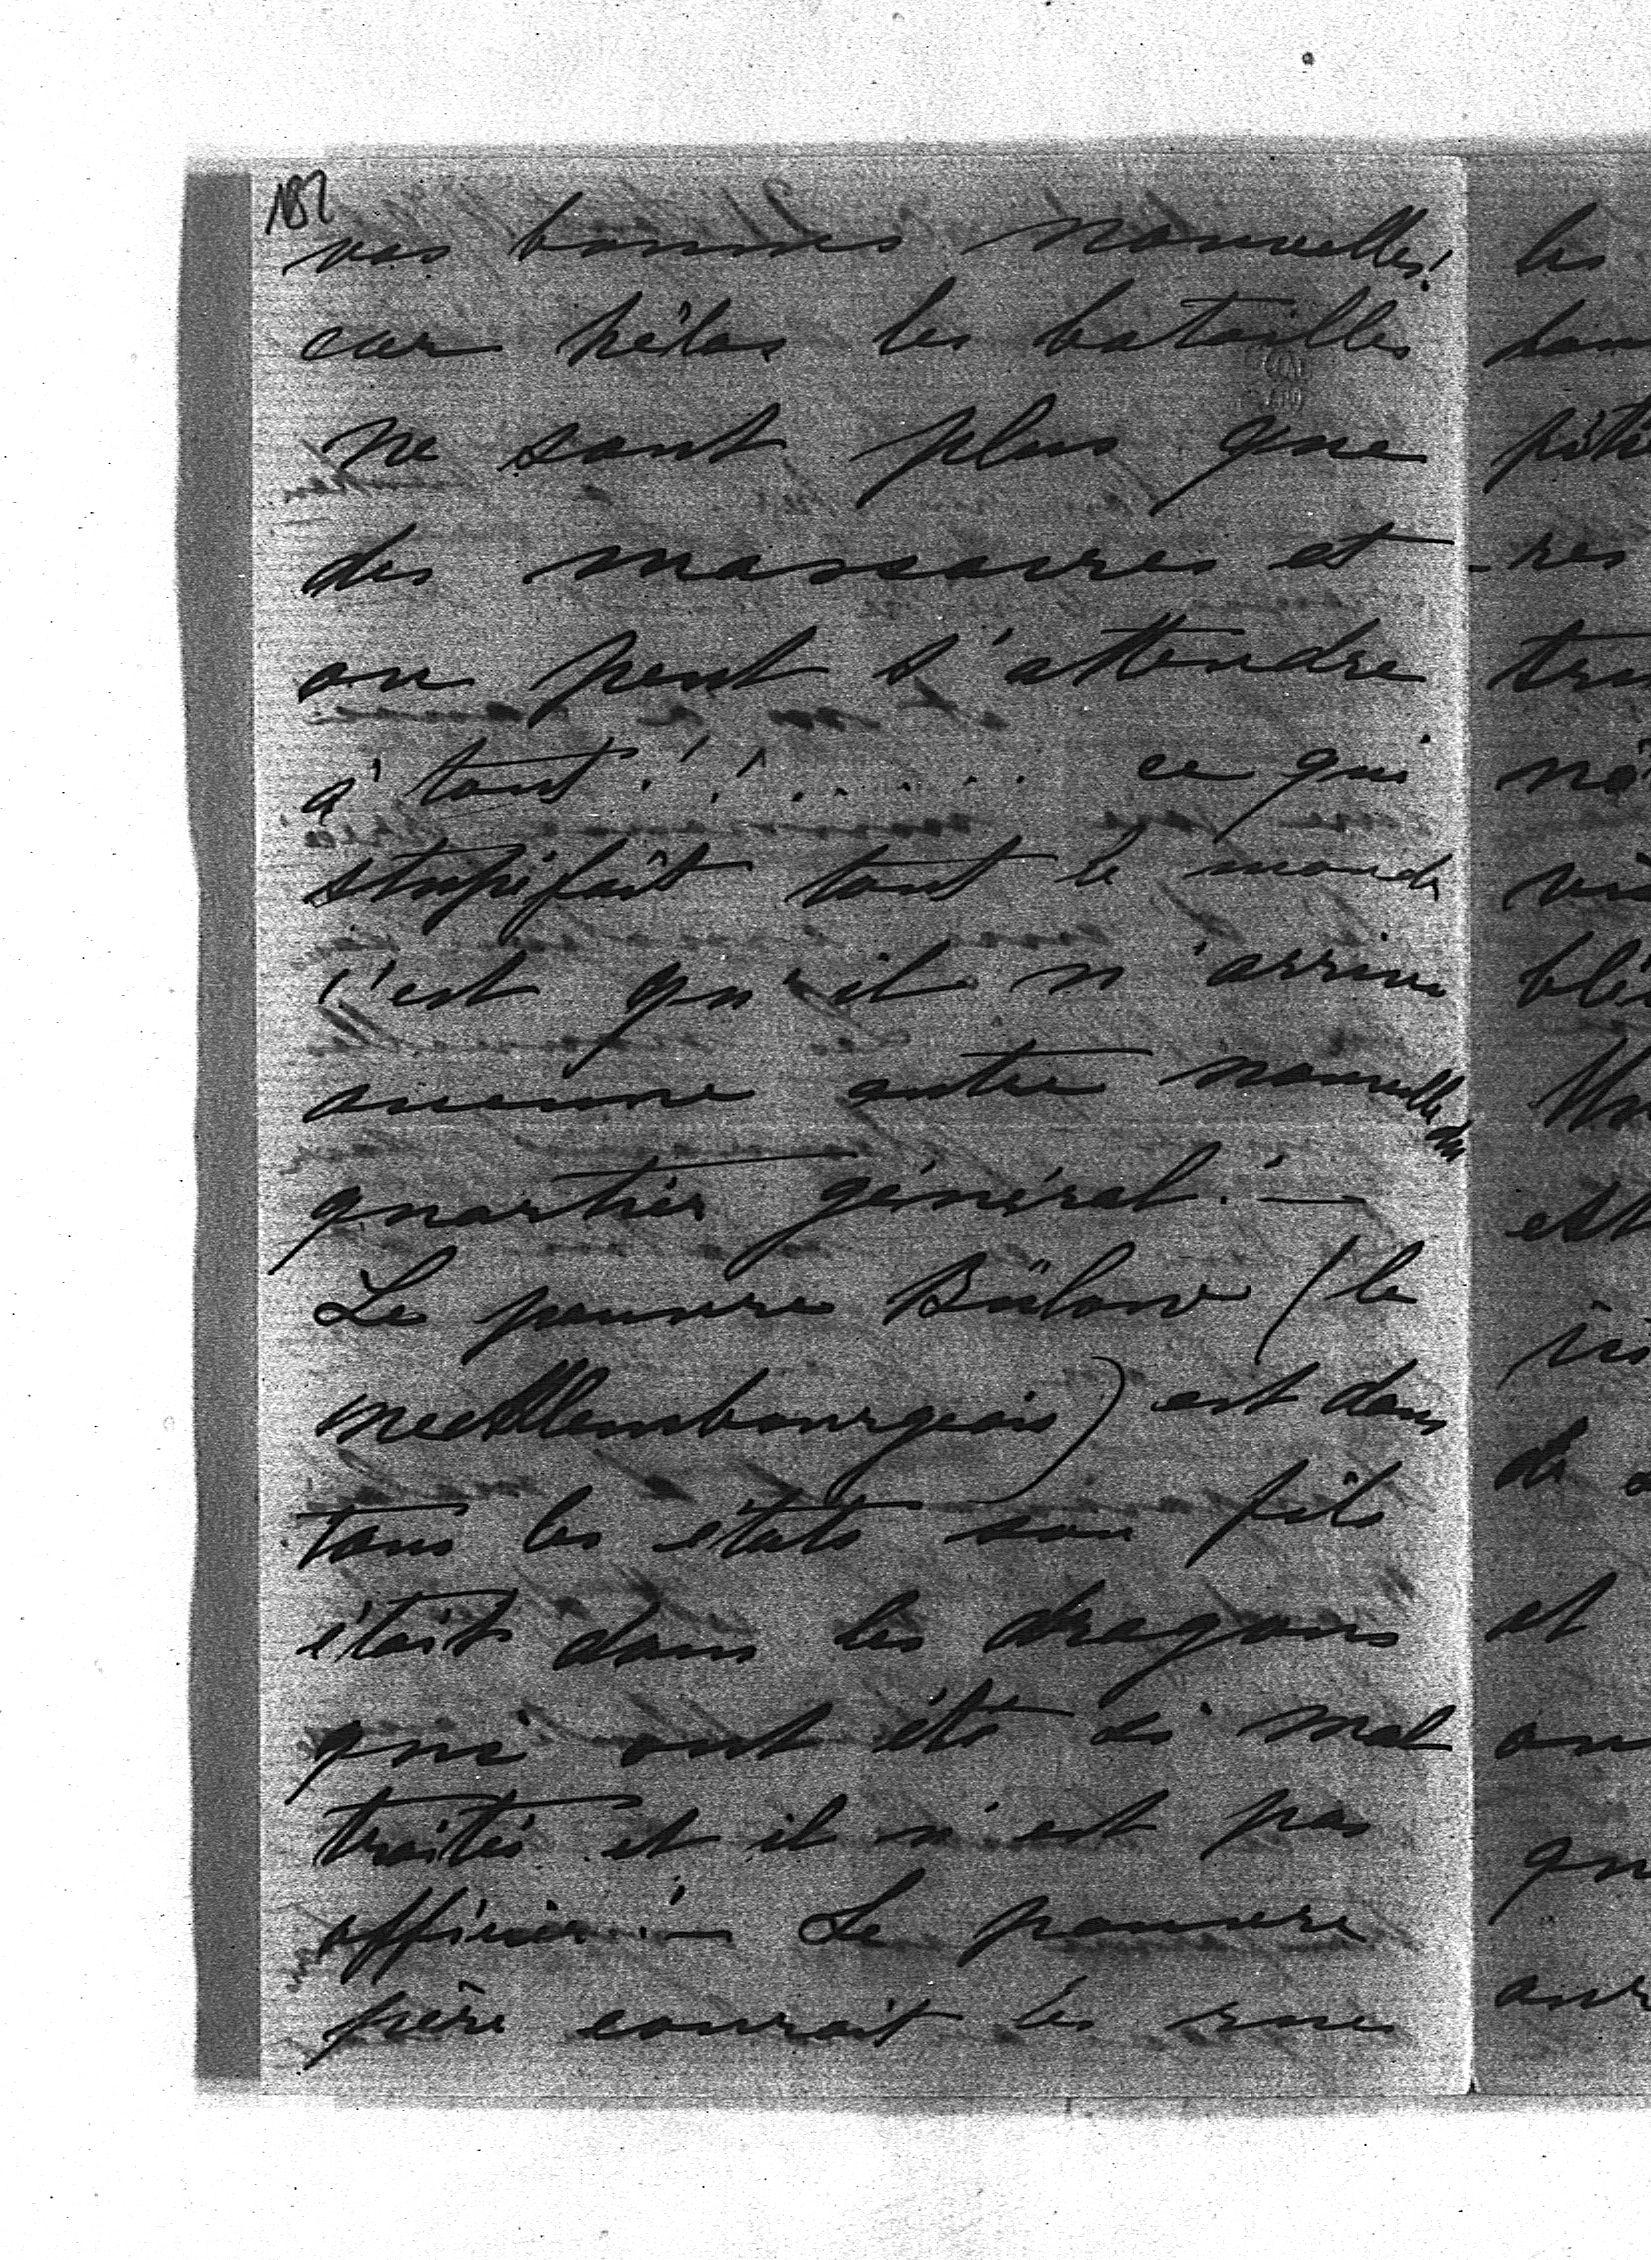 187
vos bonnes nouvelles!
car hélas les batailles
ne sont plus que
des massacres et
on peut s'attendre
à tout!! ..... ce qui
stupéfait tout le monde
c'est qu'il n'arrive
aucune autre nouvelle du
quartier général. —
Le pauvre Bülow (le
Mecklembourgeois) est dans
tous les états son fils
était dans les dragons
qui ont été si mal
traités et il n'est pas
officier! — Le pauvre
père courait les rues
les
pitu
-res
est
de
et